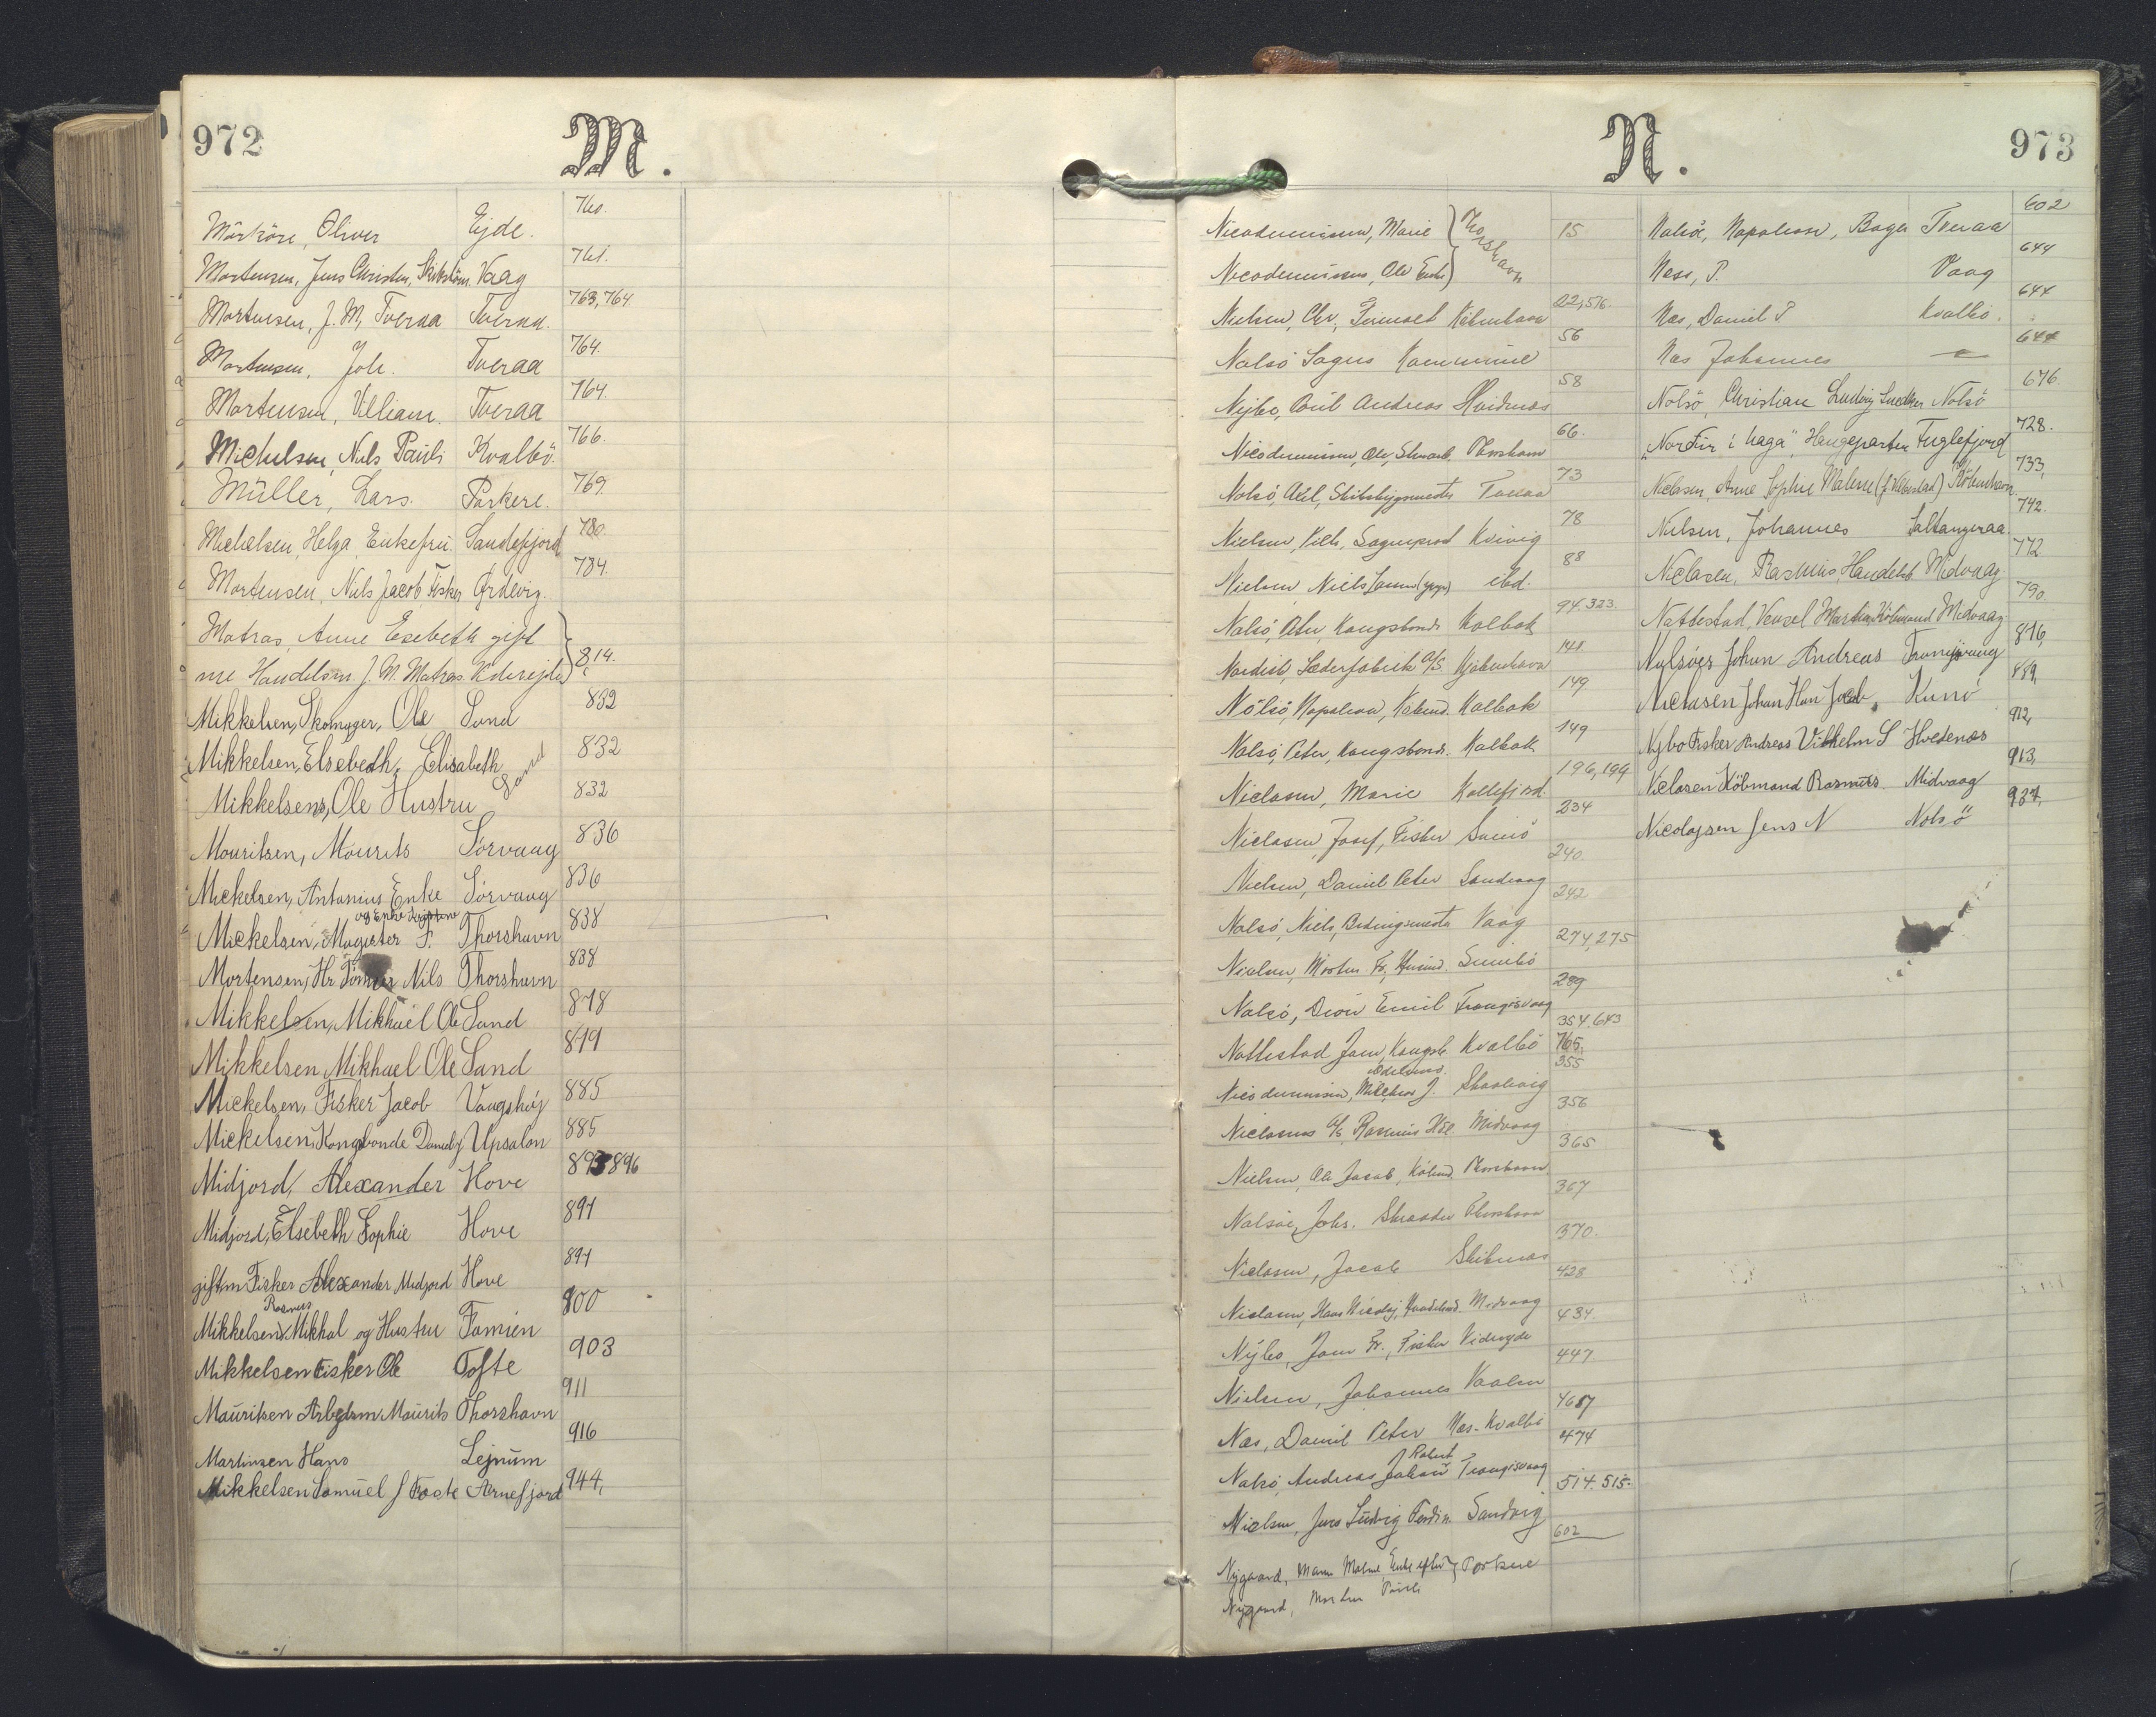 972
M.
Mörköre, Oliver Ejde. 760.
Mortensen, Jens Christen, Skibstöm. Vaag 761.
Mortensen, J. M, Tveraa Tveraa. 763, 764.
Mortensen, Joh. Tveraa 764.
Mortensen, Villiam. Tveraa 764.
Michelsen, Niels Pauli Kvalbö. 766.
Müller, Lars. Porkere. 769.
Michelsen, Helga, Enkefru. Sandefjord 780.
Mortensen, Niels Jacob, Fisker Ørdevig. 784.
Matras, Anne Elsebeth gift
m/ Handelsm. J. M. Matras. Viderejde 814.
Mikkelsen, Skomager, Ole Sand 832
Mikkelsen, Elsebeth, Elisabeth Sand 832
Mikkelsens, Ole Hustru 832
Mouritsen, Mourits Sörvaag 836
Mickelsen, Antonius Enke Sörvaag 836
og Enke
Mickelsen, Magister F. Thorshavn 838
Mortensen, Hr Tömrer Nils Thorshavn 838
Mikkelsen, Mikkael Ole Sand 878
Mikkelsen Mikhael Ole Sand 879
Mickelsen, Fisker Jacob Vaagshöj 885
Mickelsen, Kongsbonde Danielj Upsalon 885
Midjord, Alexander Hove 893 896
Midjord, Elsebeth Sophie Hove 894
gift m Fisker Alexander Midjord Hove 894
Rasmus
Mikkelsen, Mikkal og Hustru Famien 900
Mikkelsen Fisker Ole Tofte 903
Mauritsen Arbejdsm Maurits Thorshavn 911
Martinsen Hans Lejnum 916
Mikkelsen Samuel J Foste Arnefjord 944,
973
N.
Nicodemussen, Marie } Thorshavn 15
Nicodemussens, Ole Enke
Nielsen, Chr, Firmaet Köbenhavn 22, 516.
Nolsö Sogns Kommune 56
Nybo, Poul Andreas Hvidenæs 58
Nicodemussen, Ole, Thorshavn 66.
Nolsö, Axel, Skibsbygmester Tveraa 73
Nielsen, Vilh, Sognepræst Kvivig 78
Nielsen Niels ibd. 88
Nolsö, Peter, Kongsbonde Kalbak 94. 323.
Nordisk, Læderfabrik A/S. Kjöbenhavn 141
Nölsö, Napoleon, Köbmd. Kalbak 149
Nolsö, Peter, Kongsbonde. Kalbak 149
Niclasen, Marie Kollefjord. 196, 199
Niclasen, Josef, Fisker Sumbö 234
Nielsen, Daniel Peter Sandvaag 240.
Nolsö, Niels, Bedingsmester Vaag 242
Nielsen, Morten Fr, Sumbö 274, 275
Nolsö, Emil Trangisvaag 289
Nattestad Joen, Kongsb. Kvalbö 354, 643 765,
Nicodemussen, J. Skaalevig 355
Niclasens A/S, Rasmus Hdl. Midvaag 356
Nielsen, Ole Jacob, Köbmd. Thorshavn 365
Nolsöe, Johs. Skrædder Thorshavn 367
Niclasen, Jacob Skibenæs 370.
Niclasen, Hans Nicolaj, Midvaag 428
Nybo, Joen Fr., Fisker Viderejde 434.
Nielsen, Johannes 447.
Næs, Daniel Peter Næs-Kvalbö 467
Robert
Nolsö, Andreas Johan Trangisvaag 474
Nielsen, Jens Ludvig Ferdin. Sandvig 514. 515.
Nygaard, Maren Malene Enke efter } Porkere 602
Nygaard, Morten Poul
Nolsöe, Napoleon, Bager Tveraa 602
Ness, P. Vaag 644
Næs, Daniel P Kvalbö. 644
Næs Johannes — 644
Nolsö, Christian Ludvig Snedker Nolsö 676.
"Nordur i haga", Haugeparten Fuglefjord 728.
Niclasen, Anne Sophie Malene (f. Nattestad) Köbenhavn. 733,
Nielsen, Johannes Saltangeraa. 742.
Niclasen, Rasmus, Handelsb. Midvaag. 772
Nattestad, Vensel Martin, Köbmand Midvaag 790.
Nolsöes Johan Andreas Trangisvaag 876,
Niclasen Johan Han Jacob, Kunö 889,
Nybo Fisker Andreas Vilhelm S Hvidenæs 912,
Niclasen Köbmand Rasmus. Midvaag 913,
Nicolajsen Jens N Nolsö 937,